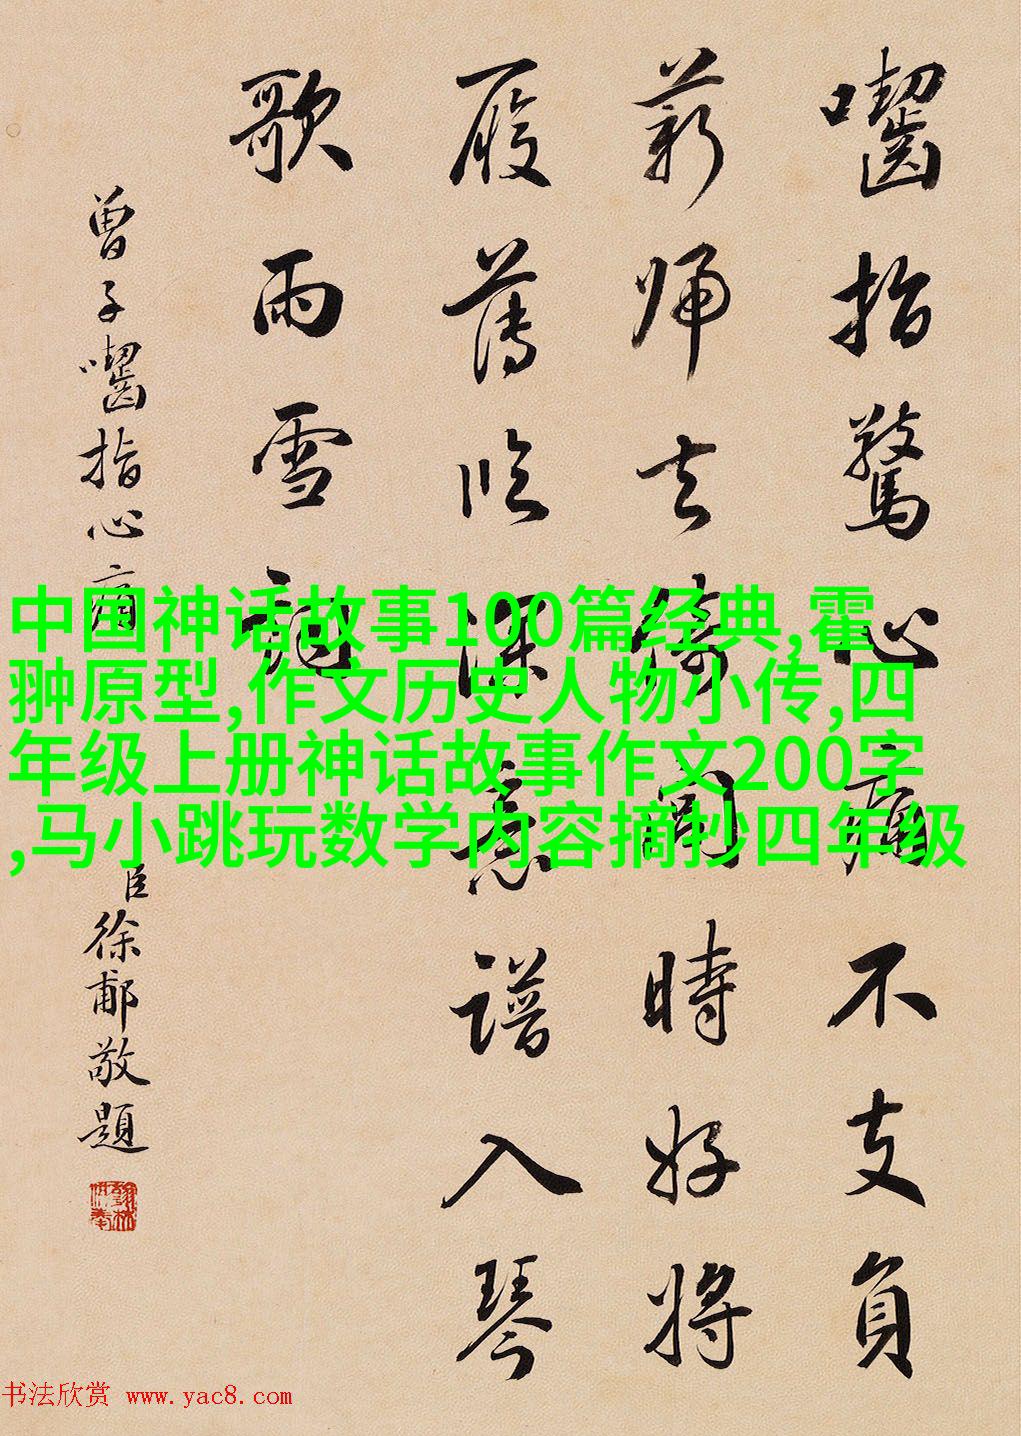 囓指驚心痛不支負
薪歸去倚閭時好將
履薄臨深意譜入琴
歌雨雪詞
曾子囓指心痛
臣徐郙敬題
中国神话故事100篇经典,霍
翀原型,作文历史人物小传,四
年级上册神话故事作文200字
,马小跳玩数学内容摘抄四年级
书法欣赏 www.yac8.com